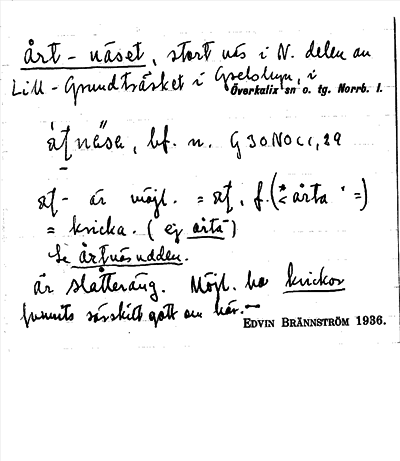 årt-näset, stort näs i N. delen av
Lill-Grundträsket i
Överkalix sn o. tg. Norrb. l.
bf. n. G 30 NO c 1, 29
är möjl. = f. (*< årta =)
= kricka. (ej ärta)
Se årtnäsudden.
är slåtteräng. Möjl. ha krickor
funnits särskilt gott om här.—
EDVIN BRÄNNSTRÖM 1936.